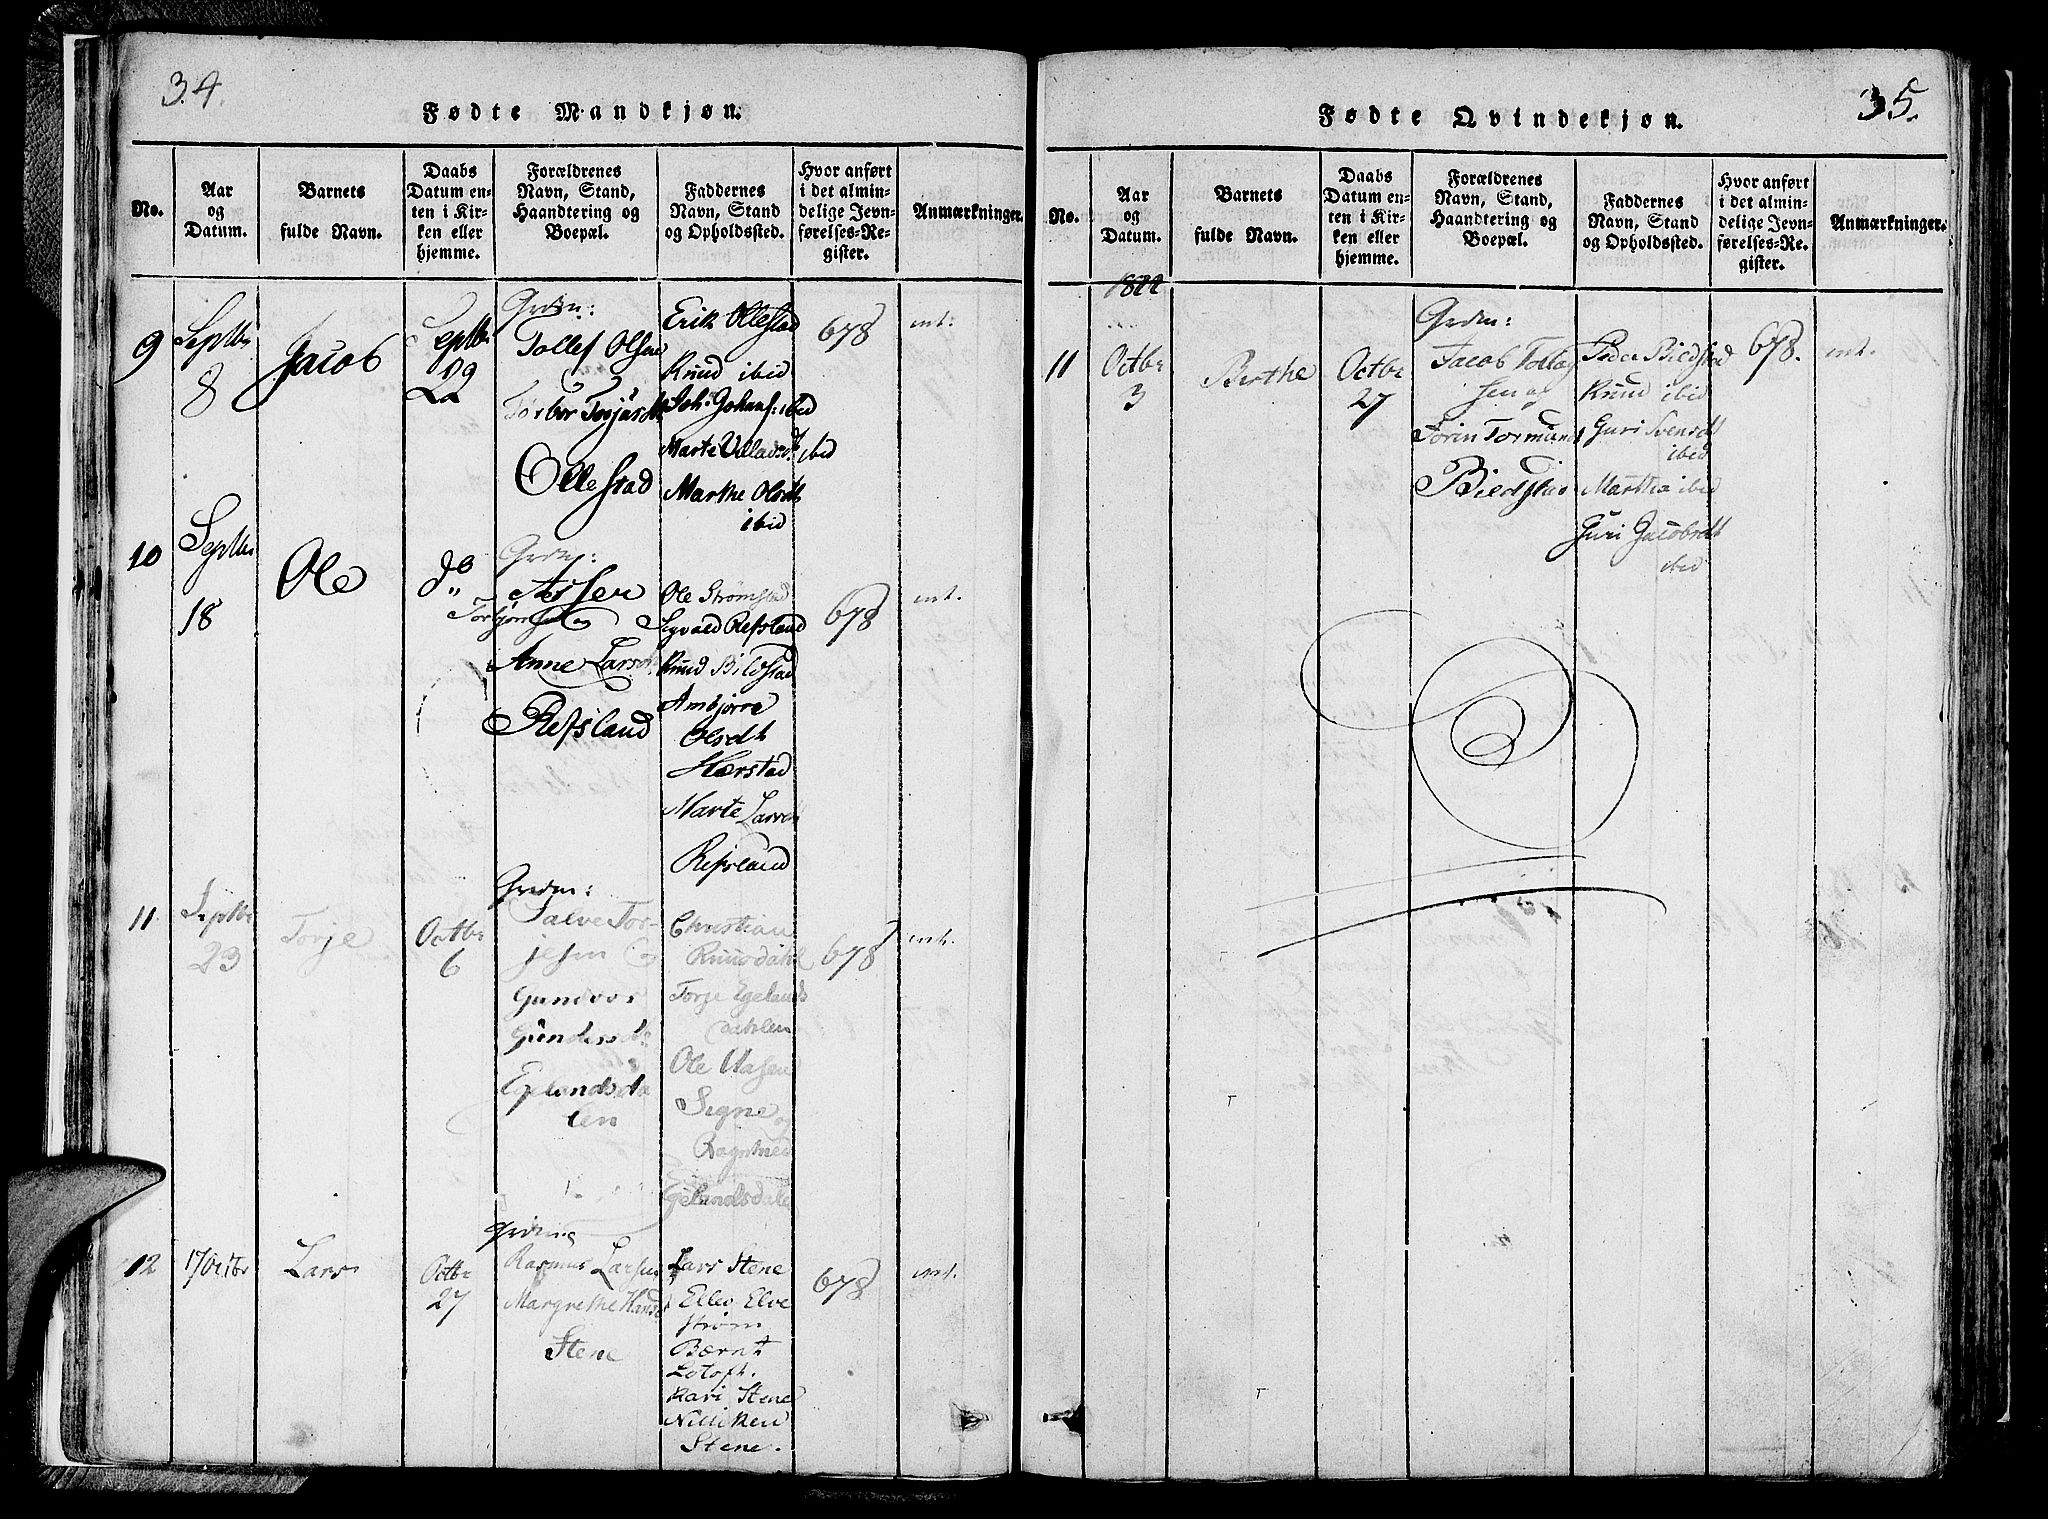 34.
Fødte Mandkjøn.
No.
Aar
og
Datum.
Barnets
fulde Navn.
Daabs
Datum en-
ten i Kir-
ken eller
hjemme.
Forældrenes
Navn, Stand,
Haandtering og
Boepæl.
Faddernes
Navn, Stand
og Opholdssted.
Hvor anført
i det almin-
delige Jevn-
førelses-Re-
gister.
Anmærkninger.
9
Septbr
8
Jacob
Septbr
22
Grdm:
Tollef Olsen
Torbor
Ollestad
Erik Ollestad
Knud ibid
Joh. Johans: ibid
Marte Villadsdt ibid
Marthe Olsdt
ibid
678
int:
10
Septbr
18
Ole
do
Grdm:
Asser
Torbjørnsen og
Anne Larsdt
Refsland
Ole Strømstad
Sigvald Refsland
Knud Bildstad
Ambjørre
Olsdt
Hærstad
Marte Larsdt
Refsland
678
int.
11
Septbr
23
Torje
Octbr
6
Grdm:
Salve Tor-
jesen
Gundvor
Gundersdt
Egelandsda
len
Christian
Knudsdahl
Torje Egelands
dahlen
Ole
Signe og
Ragnhild
Egelandsdalen
678
int.
12
17 Octbr
Lars
Octbr
27
Grdm:
Rasmus Larsen
Margrethe Hansd
Stene
Lars Stene
Ellev Elve
strøm
Bærnt
Lotoft.
Kari Stene
Nilliken
Stene.
678
int.
35.
Fødte Qvindekjøn.
No.
Aar
og
Datum.
Barnets
fulde Navn.
Daabs
Datum en-
ten i Kir-
ken eller
hjemme.
Forældrenes
Navn, Stand,
Haandtering og
Boepæl.
Faddernes
Navn, Stand
og Opholdssted.
Hvor anført
i det almin-
delige Jevn-
førelses-Re-
gister.
Anmærkninger.
1822
11
Octbr
3
Birthe
Octbr
27
Grdm:
Jacob Tollag
sen og
Torin Tormunds
Bildstad
Peder Bildstad
Knud ibid
Guri Svensdt
ibid
Martha ibid
Guri Jacobsdt
ibid
678.
int.